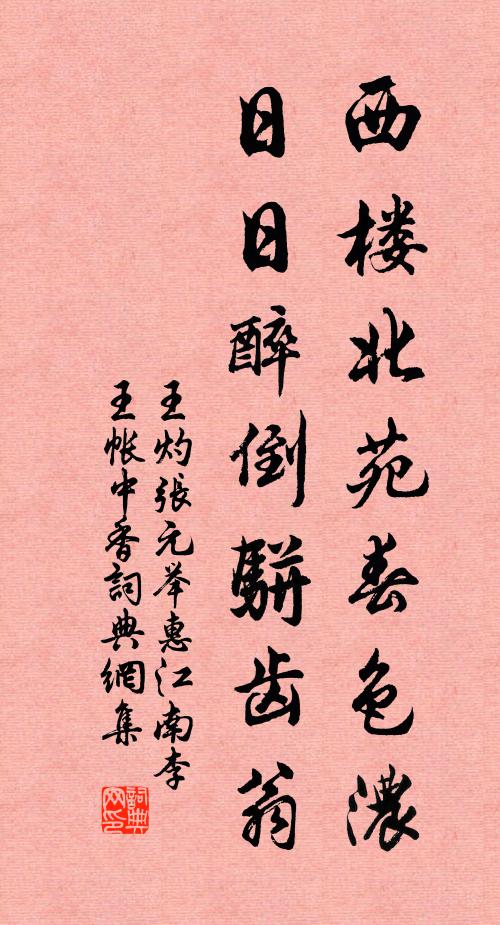 西楼北苑春色濃
日日醉倒駢齿翁
王灼張元举惠江南李
王帐中香詞典網集
詞典网印